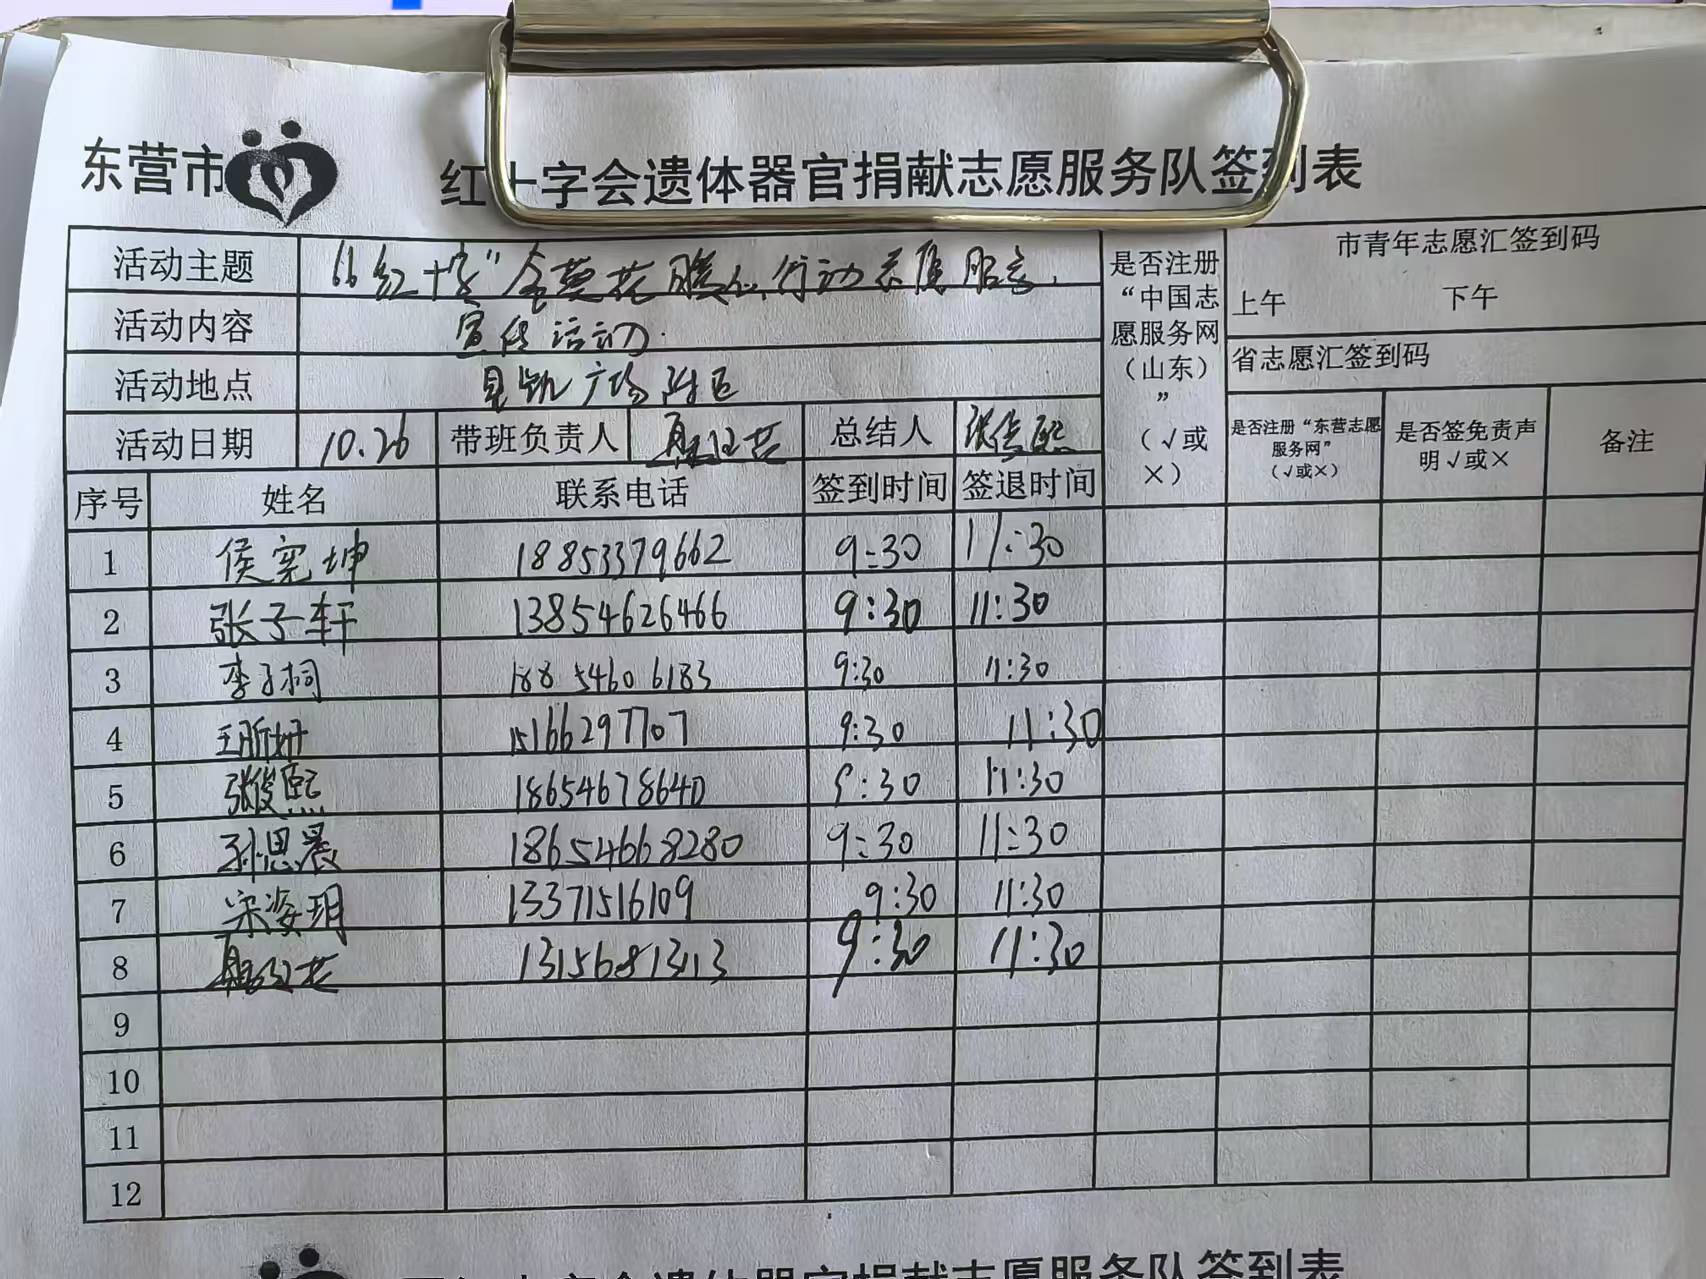 东营市 红十字会遗体器官捐献志愿服务队签到表
活动主题 “红十字” 行动志愿服务
活动内容 宣传活动
活动地点 广场附近
活动日期 10.26 带班负责人 总结人 张俊熙
是否注册“中国志愿服务网（山东）”（√或×）
市青年志愿汇签到码
上午 下午
省志愿汇签到码
是否注册“东营志愿服务网”（√或×） 是否签免责声明√或× 备注
序号 姓名 联系电话 签到时间 签退时间
1 侯宪坤 18853379662 9:30 11:30
2 张子轩 13854626466 9:30 11:30
3 李子桐 18854606183 9:30 11:30
4 王昕妍 15166297707 9:30 11:30
5 张俊熙 18654678640 9:30 11:30
6 孙思晨 18654668280 9:30 11:30
7 宋姿玥 13371516109 9:30 11:30
8 9:30 11:30
9
10
11
12
遗体器官捐献志愿服务队签到表